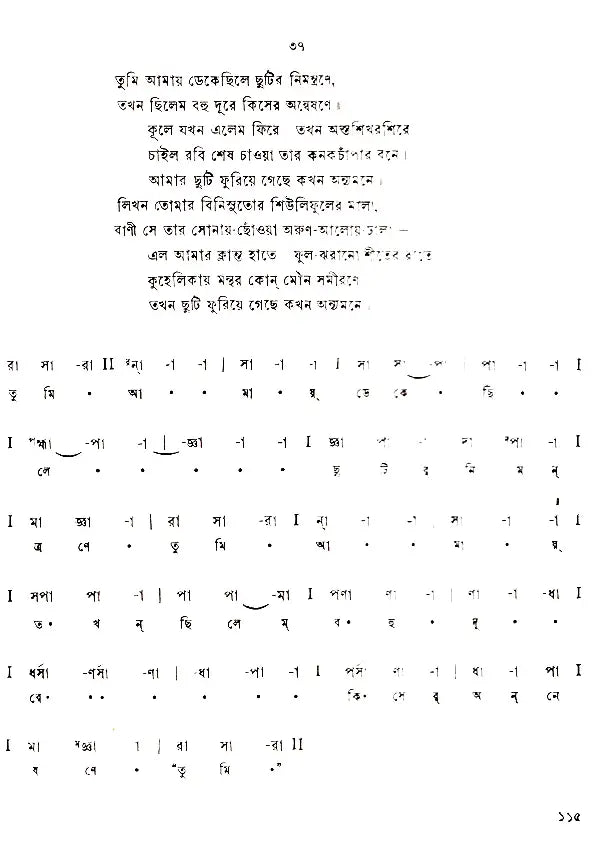 ৩৭
তুমি আমায় ডেকেছিলে ছুটির নিমন্ত্রণে,
তখন ছিলেম বহু দূরে কিসের অন্বেষণে।
কূলে যখন এলেম ফিরে তখন অস্তশিখরশিরে
চাইল রবি শেষ চাওয়া তার কনকচাঁপার বনে।
আমার ছুটি ফুরিয়ে গেছে কখন অন্যমনে।
লিখন তোমার বিনিসুতোর শিউলিফুলের মালা,
বাণী সে তার সোনায়-ছোঁওয়া অরুণ-আলোয়-ঢালা –
এল আমার ক্লান্ত হাতে ফুল-ঝরানো শীতের রাতে
কুহেলিকায় মন্থর কোন্ মৌন সমীরণে
তখন ছুটি ফুরিয়ে গেছে কখন অন্যমনে।
রা সা -রা II ন্‌া -া -া | সা -া -া I সা সা -পা | পা -া -া I
তু মি • আ • • মা • য়্ ডে কে • ছি • •
I হ্মা -পা -া | -জ্ঞা -া -া I জ্ঞা পা -া দা পা -া I
লে • • • • • ছু টি র্ নি ম ন্
I মা জ্ঞা -া | রা সা -রা I ন্‌া -া -া সা -া -া I
ত্র ণে • তু মি • আ • • মা • য়্
I সপা পা -া | পা পা -মা I পণা ণা -া | ণা -া -ধা I
ত• খ ন্ ছি লে ম্ ব• হু • দূ • •
I ধর্সা -ণর্সা -ণা | -ধা -পা -া I পর্সা ণা -া | ধা -পা পা I
রে• •• • • • • কি• সে র্ অ ন্ নে
I মা জ্ঞা -া | রা সা -রা II
ষ ণে • “তু মি •”
১১৫